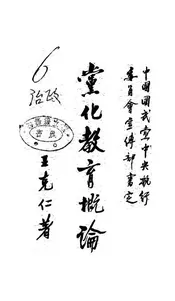 中國國民黨中央執行
委員會宣傳部審定
黨化教育概論
王克仁著
6
政治